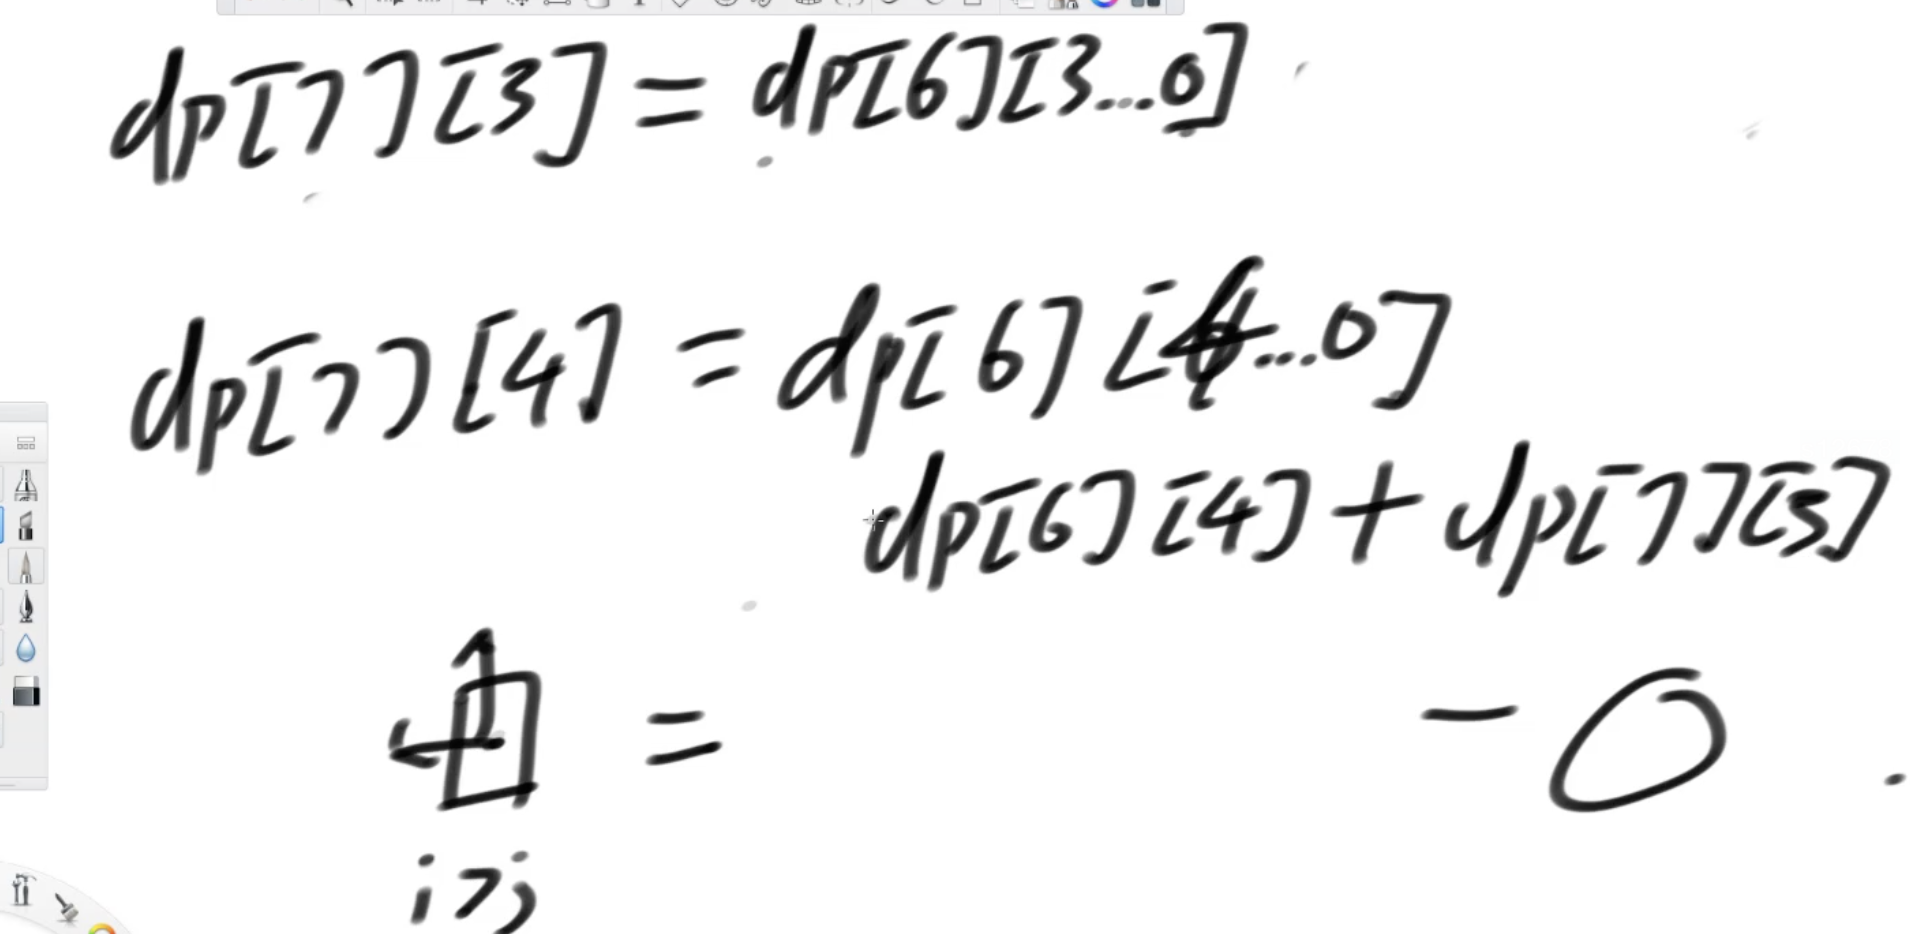 dp[7][3] = dp[6][3...0]
dp[7][4] = dp[6][4...0]
dp[6][4] + dp[7][3]
= - O
i > j